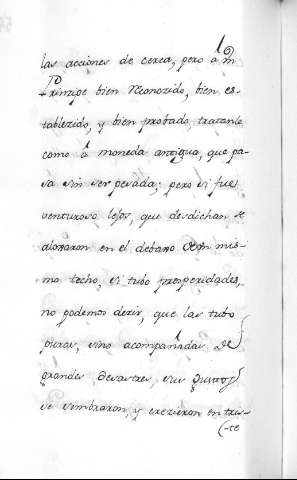 las acciones de cerca, pero á un
Prinzipe bien Reconozido, bien es-
tablezido, y bien probado, tratanle
como á moneda antigua, que pa-
sa sin ser pesada; pero si fue
venturoso lejos, que desdichas se
alojaron en el debaxo de un mis-
mo techo, si tubo prosperidades,
no podemos dezir, que las tubo
puras, sino acompañadas de
grandes desastres, sus gustos
se sembraron, y crezieron entris-
-te